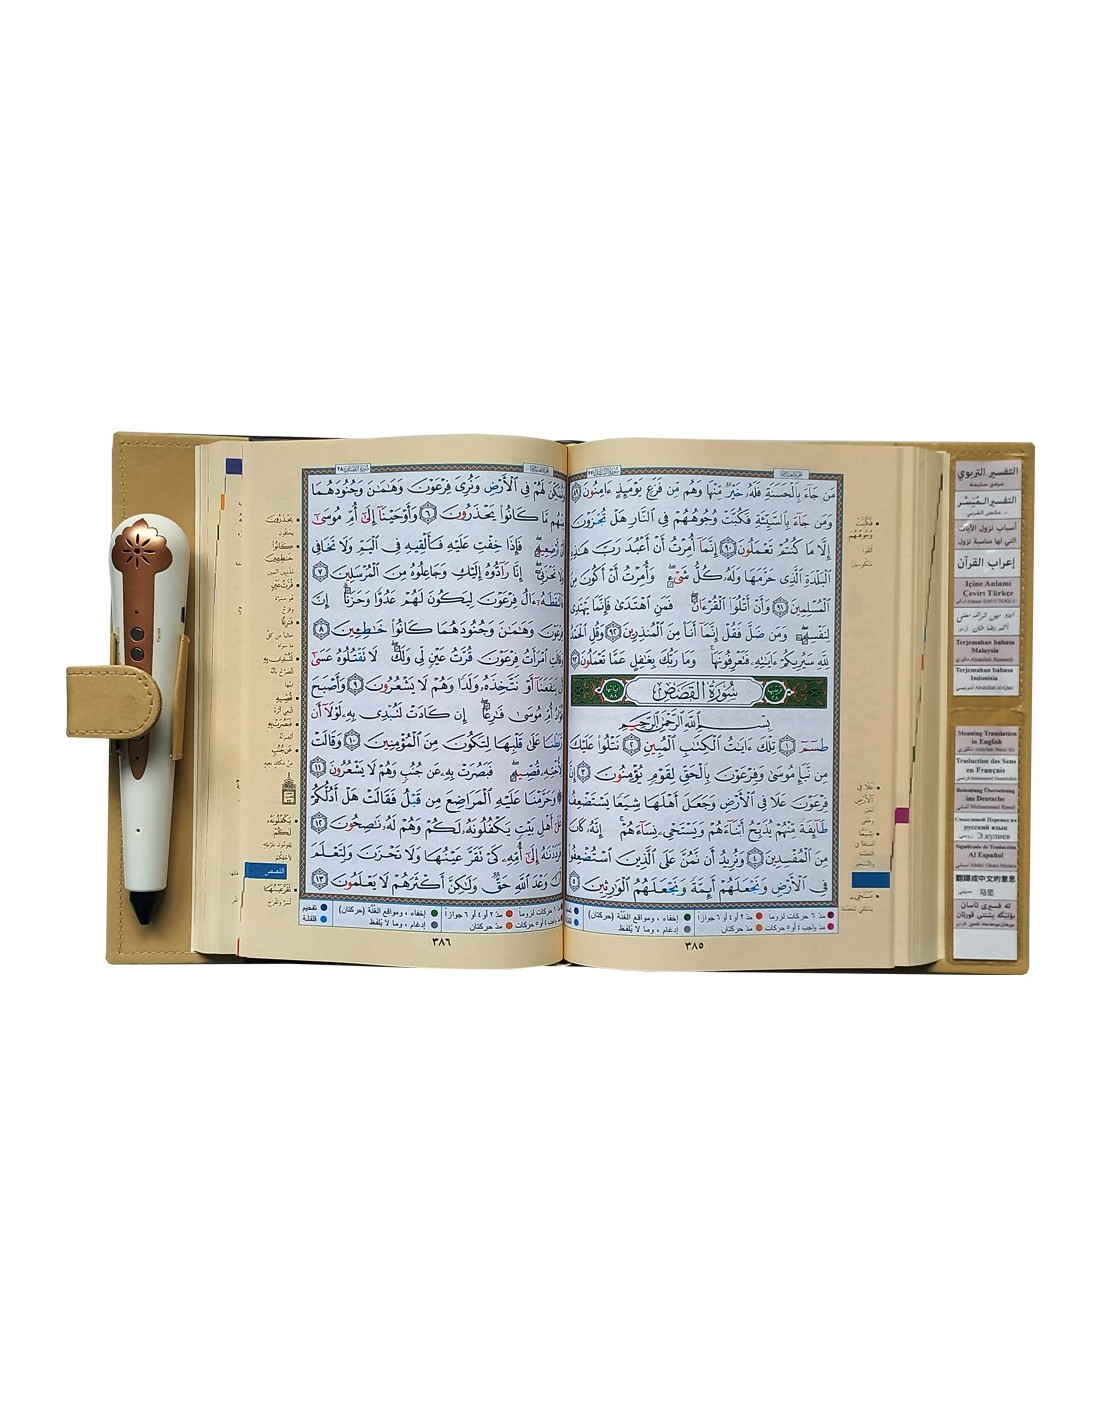 مَن جَآءَ بِٱلْحَسَنَةِ فَلَهُۥ خَيْرٌ مِّنْهَا وَهُم مِّن فَزَعٍ يَوْمَئِذٍ ءَامِنُونَ ٨٩
وَمَن جَآءَ بِٱلسَّيِّئَةِ فَكُبَّتْ وُجُوهُهُمْ فِى ٱلنَّارِ هَلْ تُجْزَوْنَ
إِلَّا مَا كُنتُمْ تَعْمَلُونَ ٩٠ إِنَّمَآ أُمِرْتُ أَنْ أَعْبُدَ رَبَّ هَٰذِهِ
ٱلْبَلْدَةِ ٱلَّذِى حَرَّمَهَا وَلَهُۥ كُلُّ شَىْءٍ ۖ وَأُمِرْتُ أَنْ أَكُونَ مِنَ
ٱلْمُسْلِمِينَ ٩١ وَأَنْ أَتْلُوَا۟ ٱلْقُرْءَانَ ۖ فَمَنِ ٱهْتَدَىٰ فَإِنَّمَا يَهْتَدِى
لِنَفْسِهِۦ ۖ وَمَن ضَلَّ فَقُلْ إِنَّمَآ أَنَا۠ مِنَ ٱلْمُنذِرِينَ ٩٢ وَقُلِ ٱلْحَمْدُ
لِلَّهِ سَيُرِيكُمْ ءَايَٰتِهِۦ فَتَعْرِفُونَهَا ۚ وَمَا رَبُّكَ بِغَٰفِلٍ عَمَّا تَعْمَلُونَ ٩٣
سُورَةُ القَصَصِ
بِسْمِ ٱللَّهِ ٱلرَّحْمَٰنِ ٱلرَّحِيمِ
طسٓمٓ ١ تِلْكَ ءَايَٰتُ ٱلْكِتَٰبِ ٱلْمُبِينِ ٢ نَتْلُوا۟ عَلَيْكَ
مِن نَّبَإِ مُوسَىٰ وَفِرْعَوْنَ بِٱلْحَقِّ لِقَوْمٍ يُؤْمِنُونَ ٣ إِنَّ
فِرْعَوْنَ عَلَا فِى ٱلْأَرْضِ وَجَعَلَ أَهْلَهَا شِيَعًا يَسْتَضْعِفُ
طَآئِفَةً مِّنْهُمْ يُذَبِّحُ أَبْنَآءَهُمْ وَيَسْتَحْىِۦ نِسَآءَهُمْ ۚ إِنَّهُۥ كَانَ
مِنَ ٱلْمُفْسِدِينَ ٤ وَنُرِيدُ أَن نَّمُنَّ عَلَى ٱلَّذِينَ ٱسْتُضْعِفُوا۟
فِى ٱلْأَرْضِ وَنَجْعَلَهُمْ أَئِمَّةً وَنَجْعَلَهُمُ ٱلْوَٰرِثِينَ ٥
مدّ ٦ حركات لزوما
مدّ ٢ أو ٤ أو ٦ جوازاً
إخفاء ، ومواقع الغُنَّة (حركتان)
مدّ واجب ٤ أو ٥ حركات
مدّ حركتان
إدغام ، وما لا يُلفَظ
٣٨٥
وَنُمَكِّنَ لَهُمْ فِى ٱلْأَرْضِ وَنُرِىَ فِرْعَوْنَ وَهَٰمَٰنَ وَجُنُودَهُمَا
مِنْهُم مَّا كَانُوا۟ يَحْذَرُونَ ٦ وَأَوْحَيْنَآ إِلَىٰٓ أُمِّ مُوسَىٰٓ
أَنْ أَرْضِعِيهِ ۖ فَإِذَا خِفْتِ عَلَيْهِ فَأَلْقِيهِ فِى ٱلْيَمِّ وَلَا تَخَافِى
وَلَا تَحْزَنِىٓ ۖ إِنَّا رَآدُّوهُ إِلَيْكِ وَجَاعِلُوهُ مِنَ ٱلْمُرْسَلِينَ ٧
فَٱلْتَقَطَهُۥٓ ءَالُ فِرْعَوْنَ لِيَكُونَ لَهُمْ عَدُوًّا وَحَزَنًا ۗ إِنَّ
فِرْعَوْنَ وَهَٰمَٰنَ وَجُنُودَهُمَا كَانُوا۟ خَٰطِـِٔينَ ٨
وَقَالَتِ ٱمْرَأَتُ فِرْعَوْنَ قُرَّتُ عَيْنٍ لِّى وَلَكَ ۖ لَا تَقْتُلُوهُ عَسَىٰٓ
أَن يَنفَعَنَآ أَوْ نَتَّخِذَهُۥ وَلَدًا وَهُمْ لَا يَشْعُرُونَ ٩ وَأَصْبَحَ
فُؤَادُ أُمِّ مُوسَىٰ فَٰرِغًا ۖ إِن كَادَتْ لَتُبْدِى بِهِۦ لَوْلَآ أَن
رَّبَطْنَا عَلَىٰ قَلْبِهَا لِتَكُونَ مِنَ ٱلْمُؤْمِنِينَ ١٠ وَقَالَتْ
لِأُخْتِهِۦ قُصِّيهِ ۖ فَبَصُرَتْ بِهِۦ عَن جُنُبٍ وَهُمْ لَا يَشْعُرُونَ ١١
وَحَرَّمْنَا عَلَيْهِ ٱلْمَرَاضِعَ مِن قَبْلُ فَقَالَتْ هَلْ أَدُلُّكُمْ
عَلَىٰٓ أَهْلِ بَيْتٍ يَكْفُلُونَهُۥ لَكُمْ وَهُمْ لَهُۥ نَٰصِحُونَ ١٢
فَرَدَدْنَٰهُ إِلَىٰٓ أُمِّهِۦ كَىْ تَقَرَّ عَيْنُهَا وَلَا تَحْزَنَ وَلِتَعْلَمَ
أَنَّ وَعْدَ ٱللَّهِ حَقٌّ وَلَٰكِنَّ أَكْثَرَهُمْ لَا يَعْلَمُونَ ١٣
مدّ ٢ أو ٤ أو ٦ جوازاً
إخفاء ، ومواقع الغُنَّة (حركتان)
تفخيم
مدّ حركتان
إدغام ، وما لا يُلفَظ
قلقلة
٣٨٦
القصص
التفسير التربوي
التفسير المُيَسَّر
أسباب نزول الآيات
التي لها مناسبة نزول
إعراب القرآن
Içine Anlamı
Çeviri Türkçe
Terjemahan bahasa
Malaysia
Terjemahan bahasa
Indonisia
Meaning Translation
in English
Traduction des Sens
en Français
Bedeutung Übersetzung
ins Deutsche
Смысловой Перевод на
русский язык
Э.кулиев
Significado de Traduction
Al Español
翻譯成中文的意思
马坚